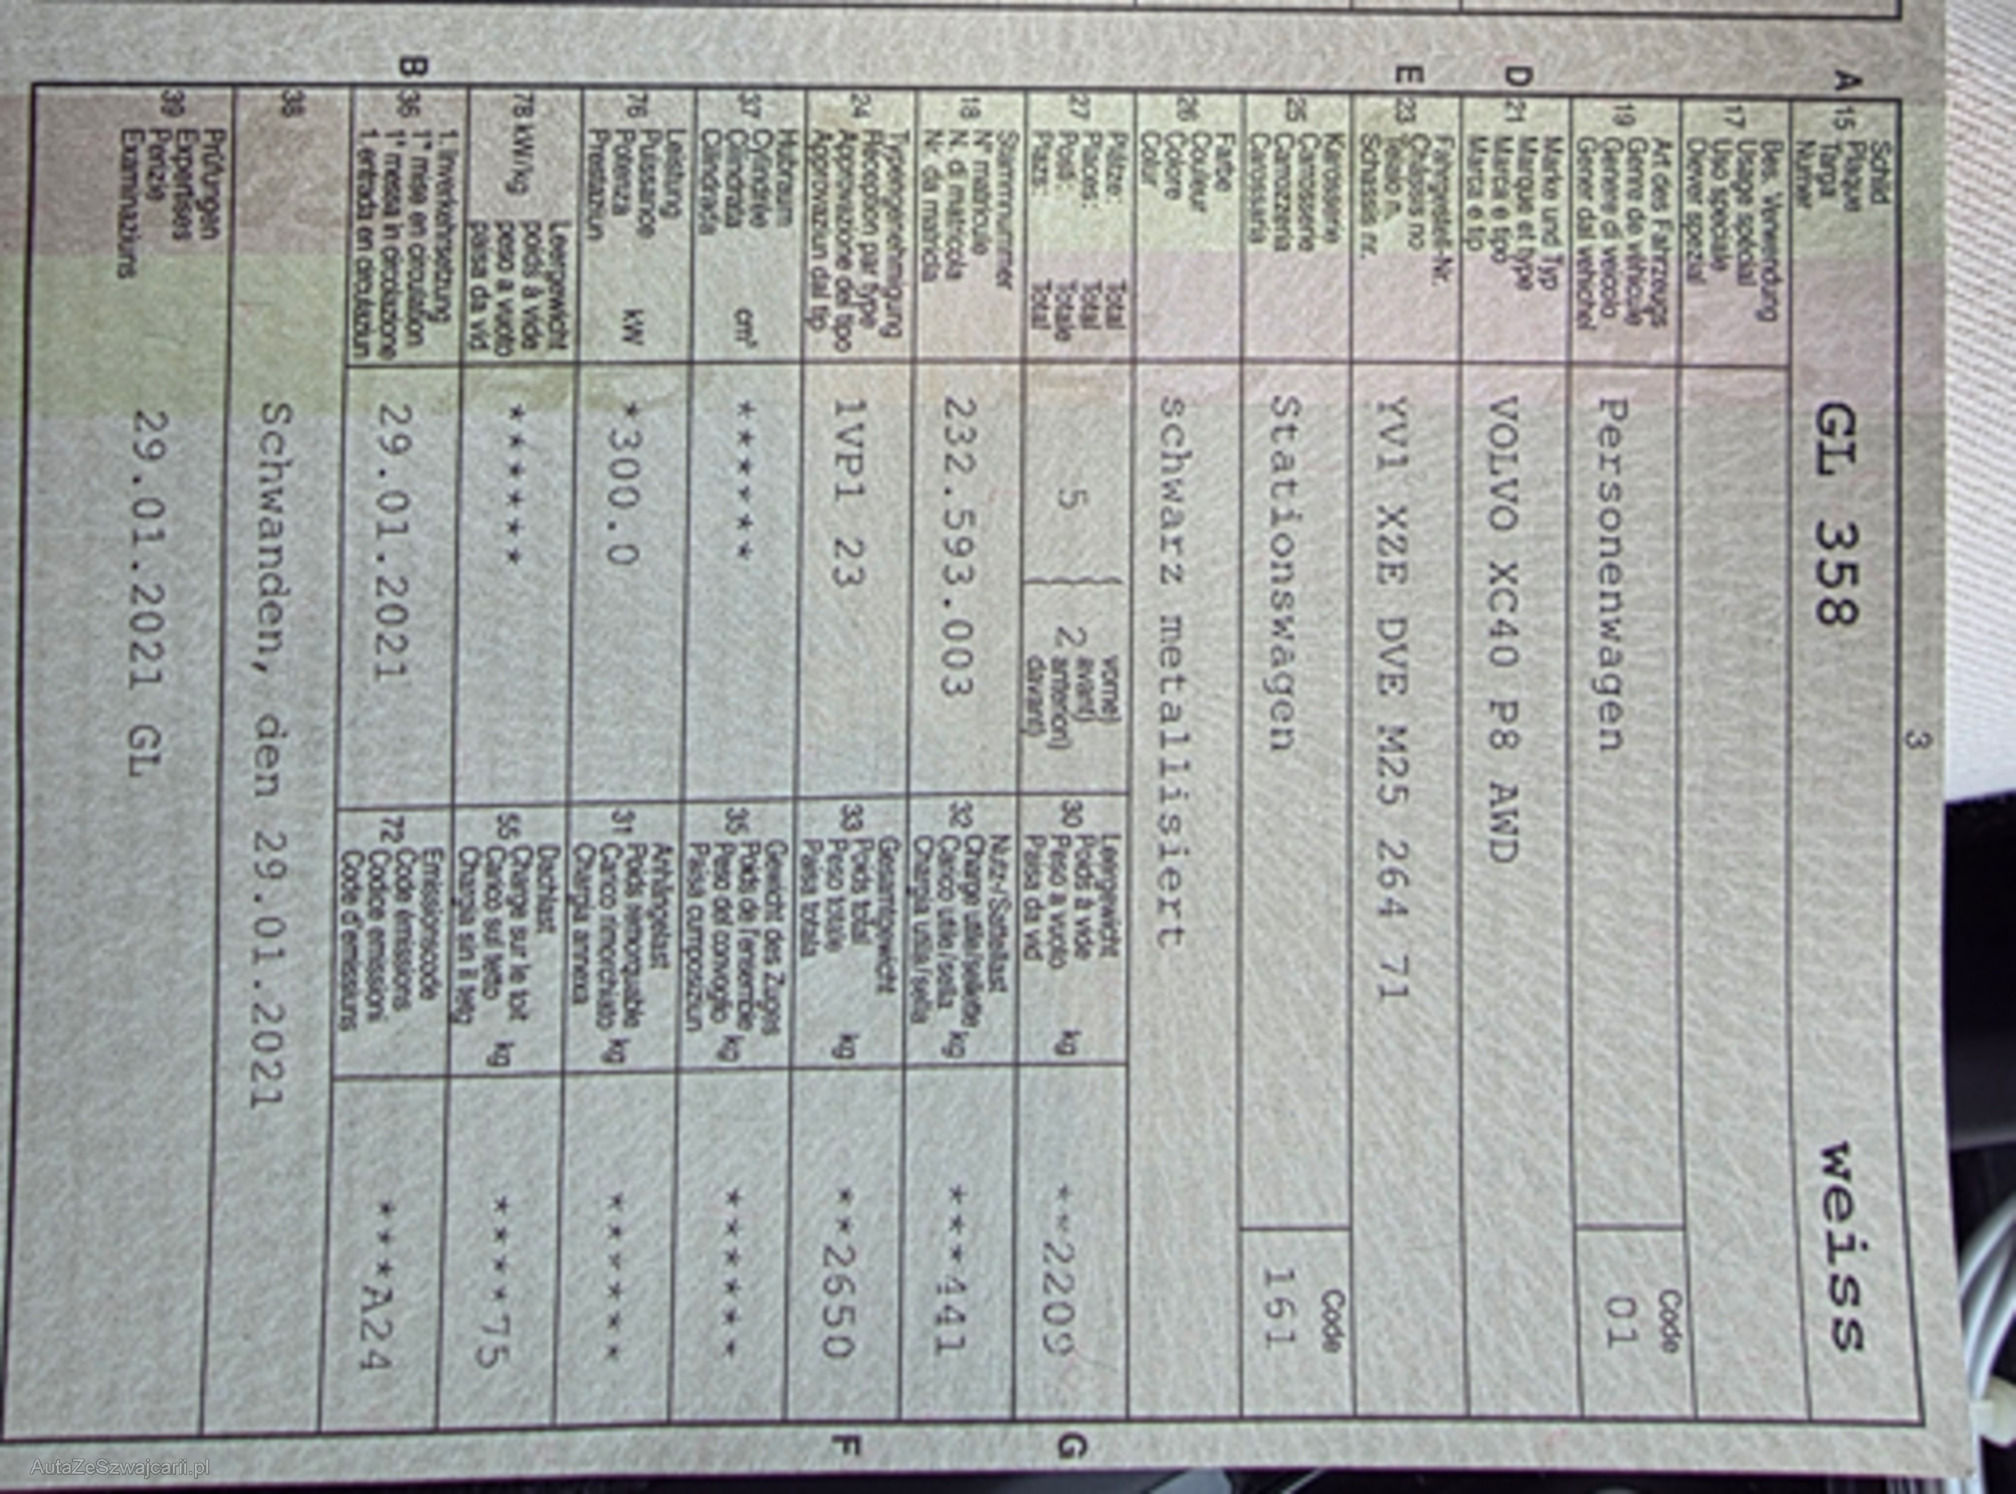 3
A 15 Schild
Plaque
Targa
Numer
GL 358 weiss
17 Bes. Verwendung
Usage spécial
Uso speciale
Diever spezial
19 Art des Fahrzeugs
Genre de véhicule
Genere di veicolo
Gener dal vehichel
Personenwagen
Code
01
D 21 Marke und Typ
Marque et type
Marca e tipo
Marca e tip
VOLVO XC40 P8 AWD
E 23 Fahrgestell-Nr.
Châssis no
Telaio n.
Schassis nr.
YV1 XZE DVE M25 264 71
25 Karosserie
Carrosserie
Carrozzeria
Carossaria
Stationswagen
Code
161
26 Farbe
Couleur
Colore
Colur
schwarz metallisiert
27 Plätze: Total
Places: Total
Posti: Totale
Plazs: Total
5
2
vorne)
avant)
anteriori)
davant)
30 Leergewicht
Poids à vide
Peso a vuoto kg
Paisa da vid
**2209
G
18 Stammnummer
N° matricule
N. di matricola
Nr. da matricla
232.593.003
32 Nutz-/Sattellast
Charge utile/sellette
Carico utile/sella kg
Chargia utila/sella
***441
24 Typengenehmigung
Réception par type
Approvazione del tipo
Approvaziun dal tip
1VP1 23
33 Gesamtgewicht
Poids total
Peso totale kg
Paisa totala
**2650
F
37 Hubraum
Cylindrée
Cilindrata cm³
Cilindrada
******
35 Gewicht des Zuges
Poids de l'ensemble
Peso del convoglio kg
Paisa cumposiziun
******
76 Leistung
Puissance
Potenza kW
Prestaziun
*300.0
31 Anhängelast
Poids remorquable
Carico rimorchiato kg
Chargia annexa
******
78 kW/kg Leergewicht
poids à vide
peso a vuoto
paisa da vid
******
55 Dachlast
Charge sur le toit
Carico sul tetto kg
Chargia sin il tetg
****75
B 36 1. Inverkehrsetzung
1re mise en circulation
1a messa in circolazione
1. entrada en circulaziun
29.01.2021
72 Emissionscode
Code émissions
Codice emissioni
Code d'emissiuns
***A24
38
Schwanden, den 29.01.2021
39 Prüfungen
Expertises
Perizie
Examinaziuns
29.01.2021 GL
AutaZeSzwajcarii.pl